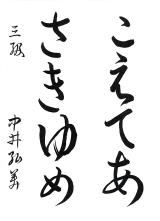 こえてあ
さきゆめ
三級 中井弘美